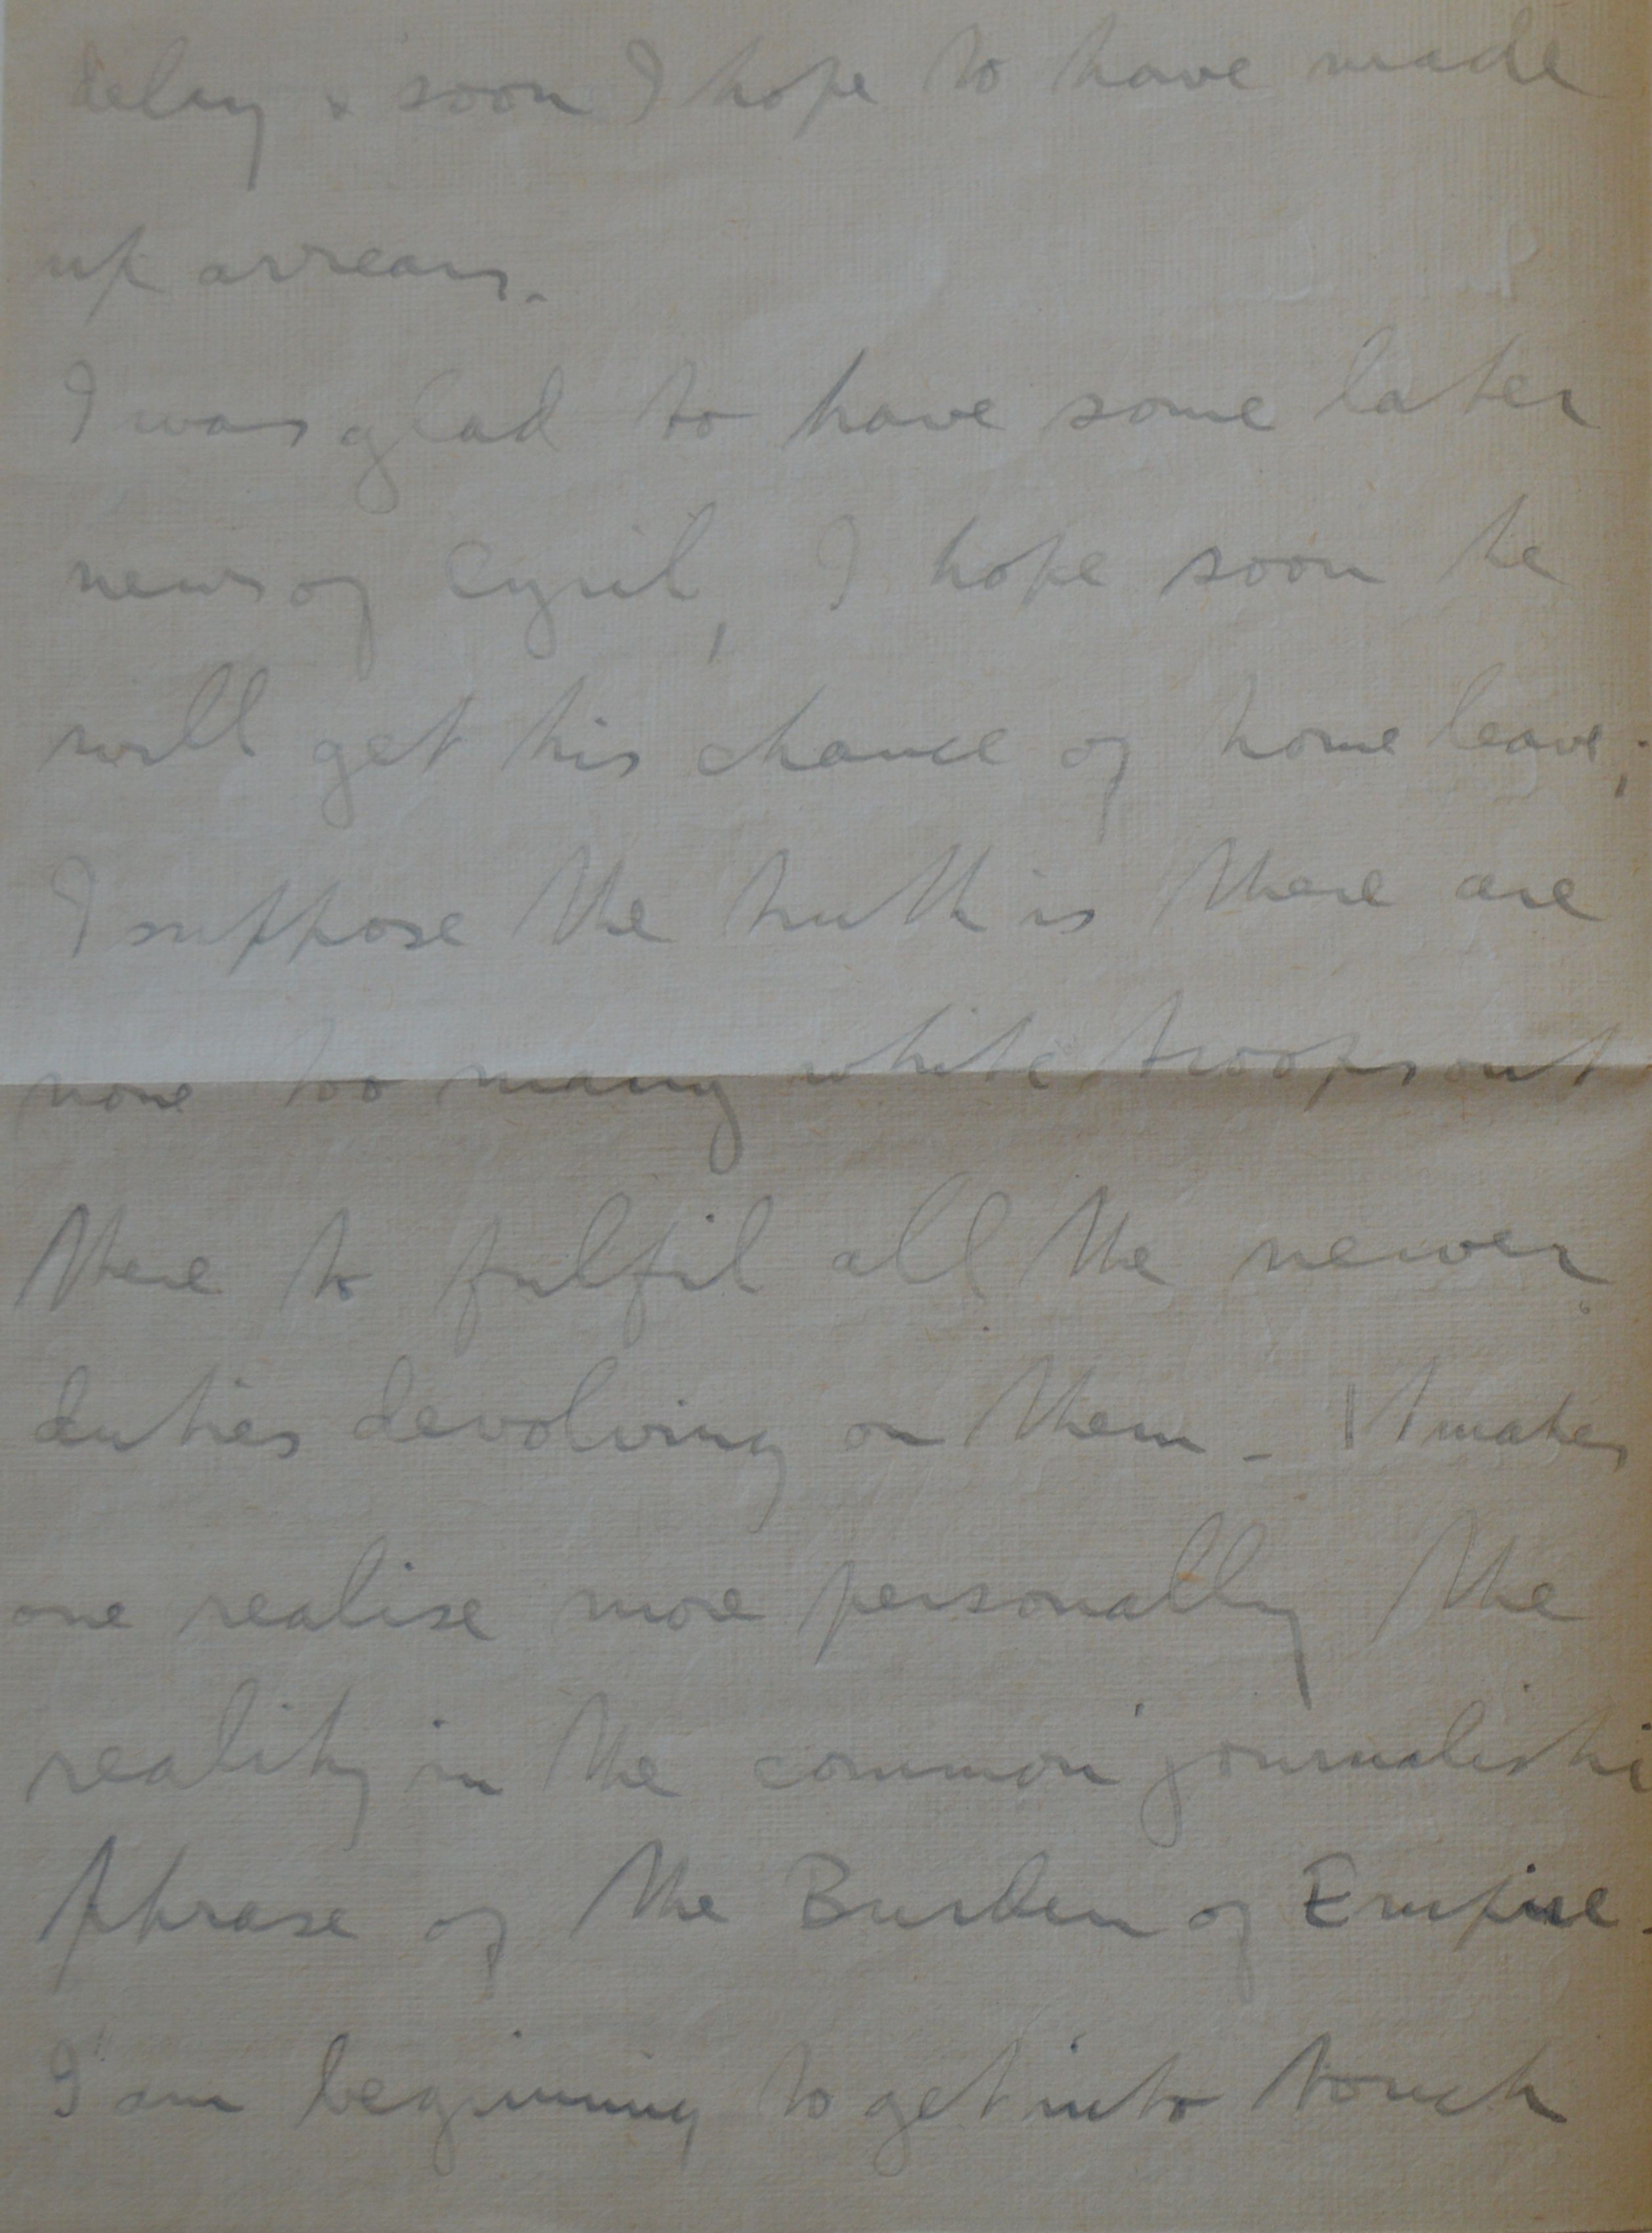 delay & soon I hope to have made
up arrears.
I was glad to have some later
news of Cyril, I hope soon he
will get his chance of home leave;
I suppose the truth is there are
none too many white troops out
there to fulfil all the newer
duties devolving on them - It makes
one realise more personally the
reality in the common journalisti
phrase of the Burden of Empire.
I am beginning to get into touch